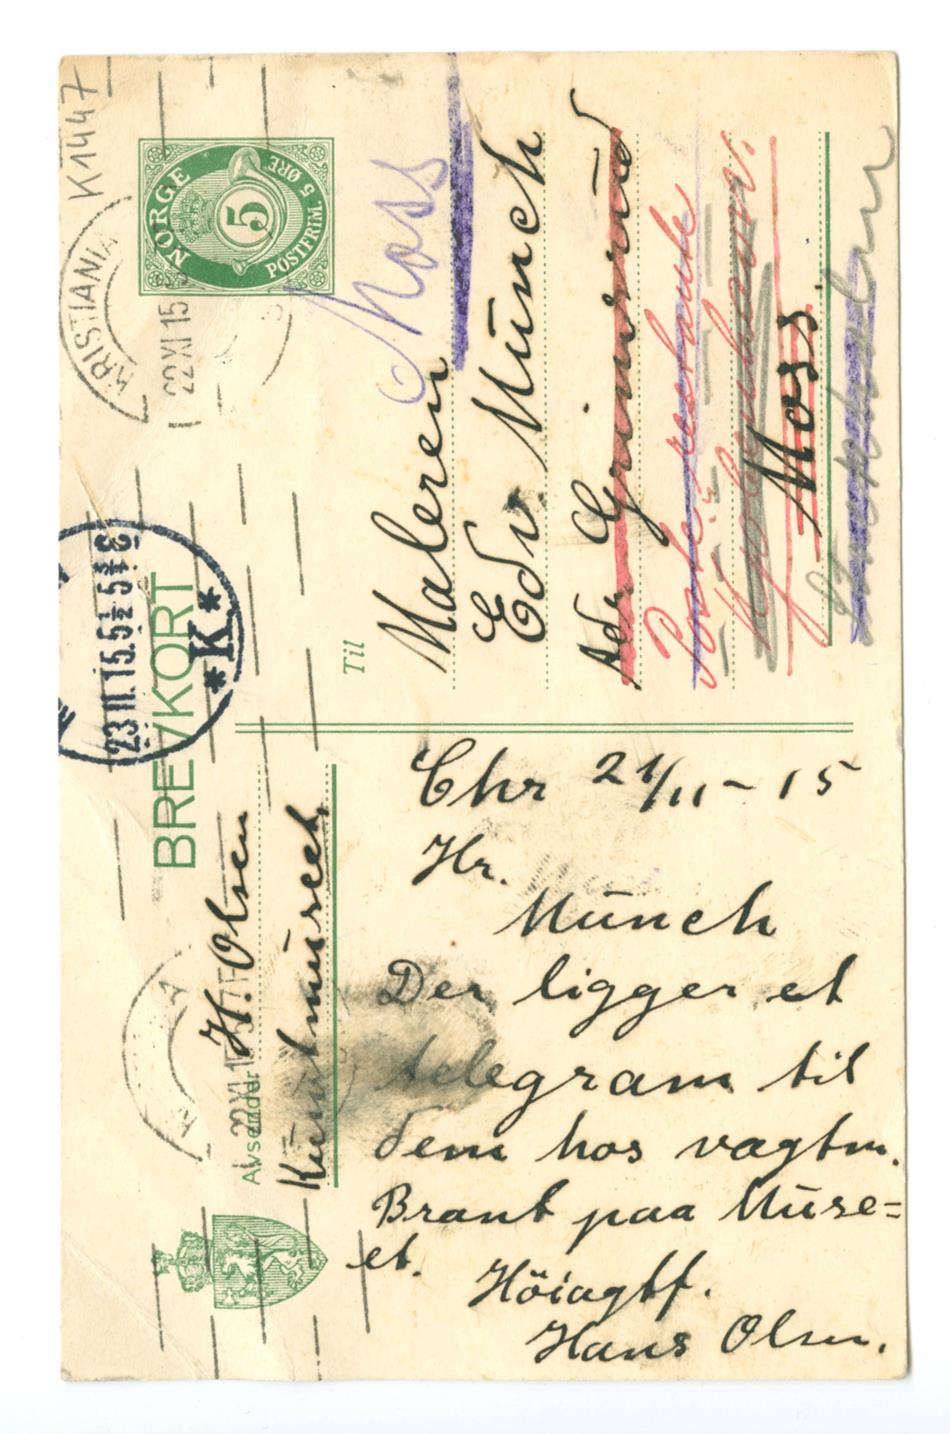 K1447
NORGE
5
POSTFRIM. 5 ØRE
KRISTIANIA
22 XI 15
BREVKORT
23.11.15.5½-6 E
*K*
Til
Moss
Maleren
Edv. Münch
Adr Grimsrød
Poste restante
Kjøbenhavn.
Moss.
Avsender
H. Olsen
Kunstmuseet
22 XI 15
Chr 21/11-15
Hr.
Münch
Der ligger et
telegram til
dem hos vagtm.
Brant paa Muse=
et.
Höiagtf.
Hans Olsen.